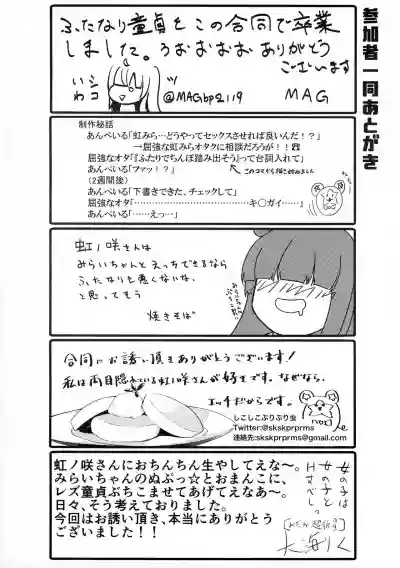 参加者一同あとがき
ふたなり童貞をこの合同で卒業
しました。うおおおおありがとう
ございます
シコいわ
@MAGbp2119
MAG
制作秘話
あんぺいる「虹みら…どうやってセックスさせれば良いんだ！？」
→屈強な虹みらオタクに相談だろうが！！
屈強なオタ「『ふたりでちんぽ踏み出そう』って台詞入れて」
あんぺいる「ファッ！？」
(２週間後)
あんぺいる「下書きできた、チェックして」
屈強なオタ「………………………………キ〇ガイ……」
あんぺいる「……えっ…」
虹ノ咲さんは
みらいちゃんとえっちできるなら
ふたなりも悪くないな、
と思ってそう
焼きそば
合同にお誘い頂きありがとうございます！
私は両目隠れている虹ノ咲さんが好きです。なぜなら、
エッチだからです。
しこしこぷりぷり虫
Twitter:@skskprprms
連絡先:skskprprms@gmail.com
虹ノ咲さんにおちんちん生やしてえな〜。
みらいちゃんのぬぷっ☆とおまんこに、
レズ童貞ぶちこませてあげてえなあ〜。
日々、そう考えておりました。
今回はお誘い頂き、本当にありがとう
ございました！！
女の子は
女の子と
Hすべし。